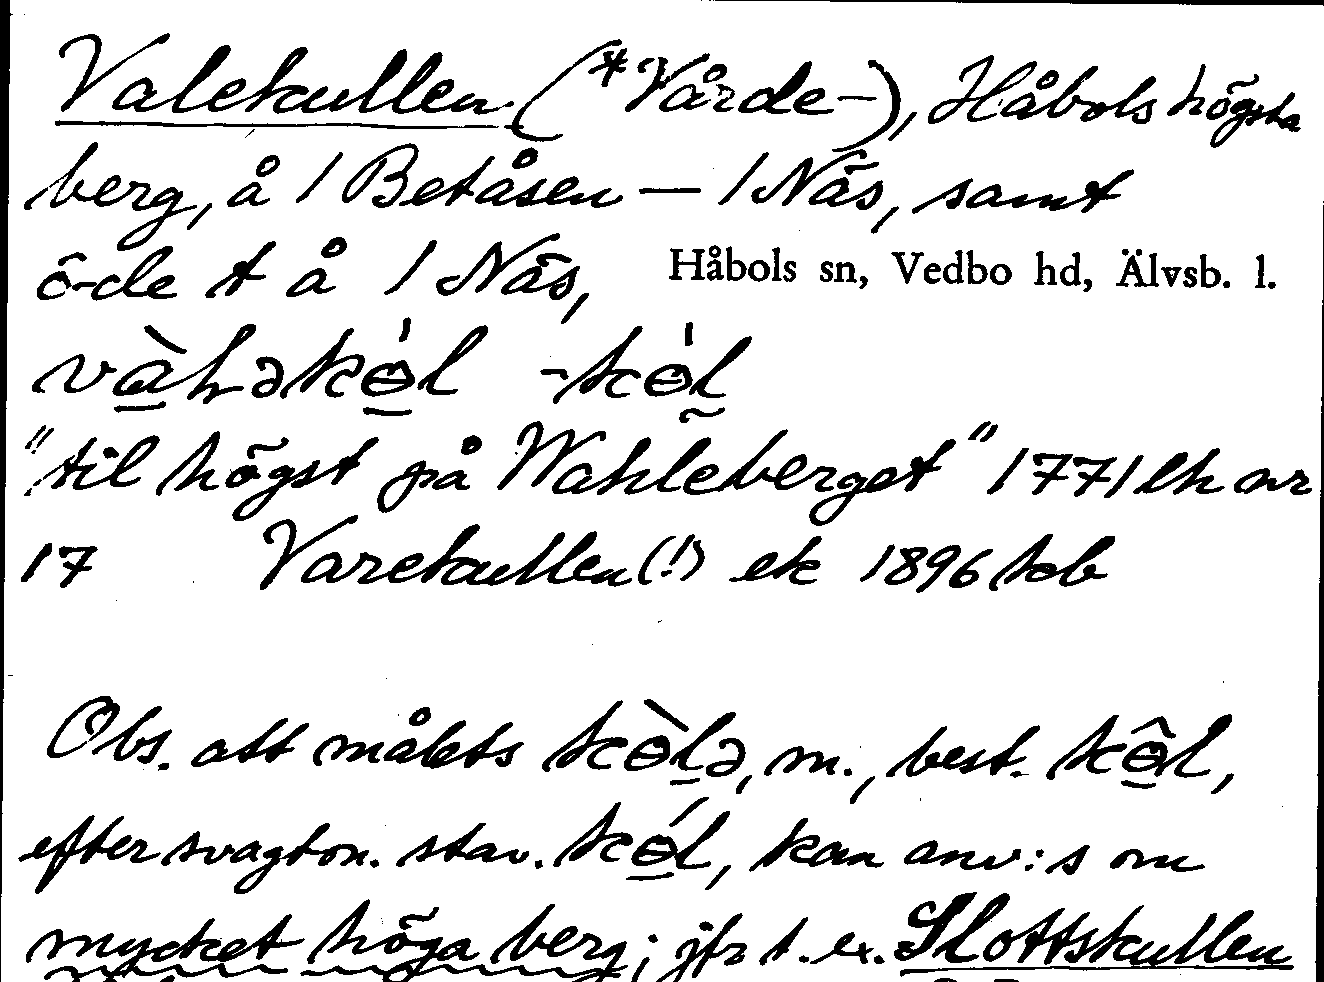 Valekullen (*Vårde-), Håbols högsta
berg, å 1 Betåsen — 1 Näs, samt
ö-de t å 1 Näs,
Håbols sn, Vedbo hd, Älvsb. l.
"til högst på Wahleberget" 1771 lh nr
17 Varekullen (!) ek 1896
Obs. att målets m., best.
efter svagton. stav. kan anv:s om
mycket höga berg; jfr t. ex. Slottskullen